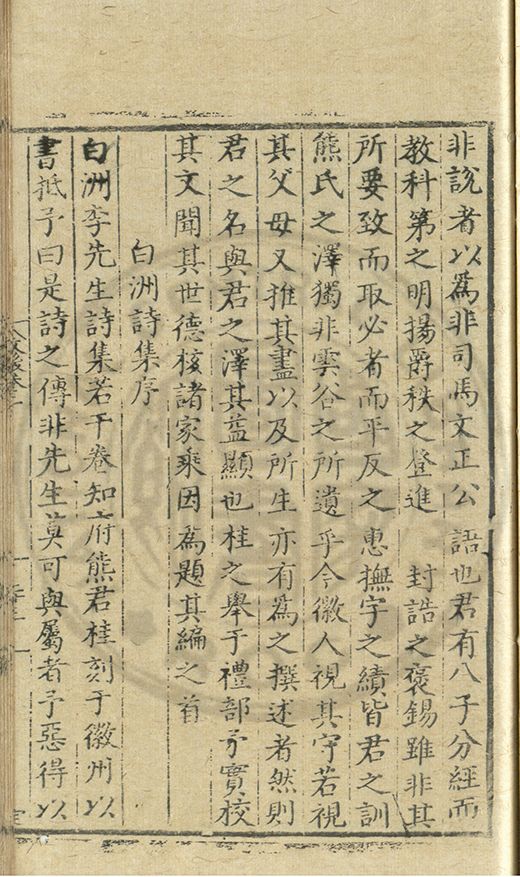 非說者以為非司馬文正公語也君有八子分經而
教科第之明揚爵秩之登進　封誥之褒錫雖非其
所要致而取必者而平反之惠撫字之績皆君之訓
熊氏之澤獨非雲谷之所遺乎今徽人視其守若視
其父母又推其盡以及所生亦有為之撰述者然則
君之名與君之澤其益顯也桂之舉于禮部予實校
其文聞其世德核諸家乘因為題其編之首
白洲詩集序
白洲李先生詩集若干卷知府熊君桂刻于徽州以
書抵予曰是詩之傳非先生莫可與屬者予惡得以